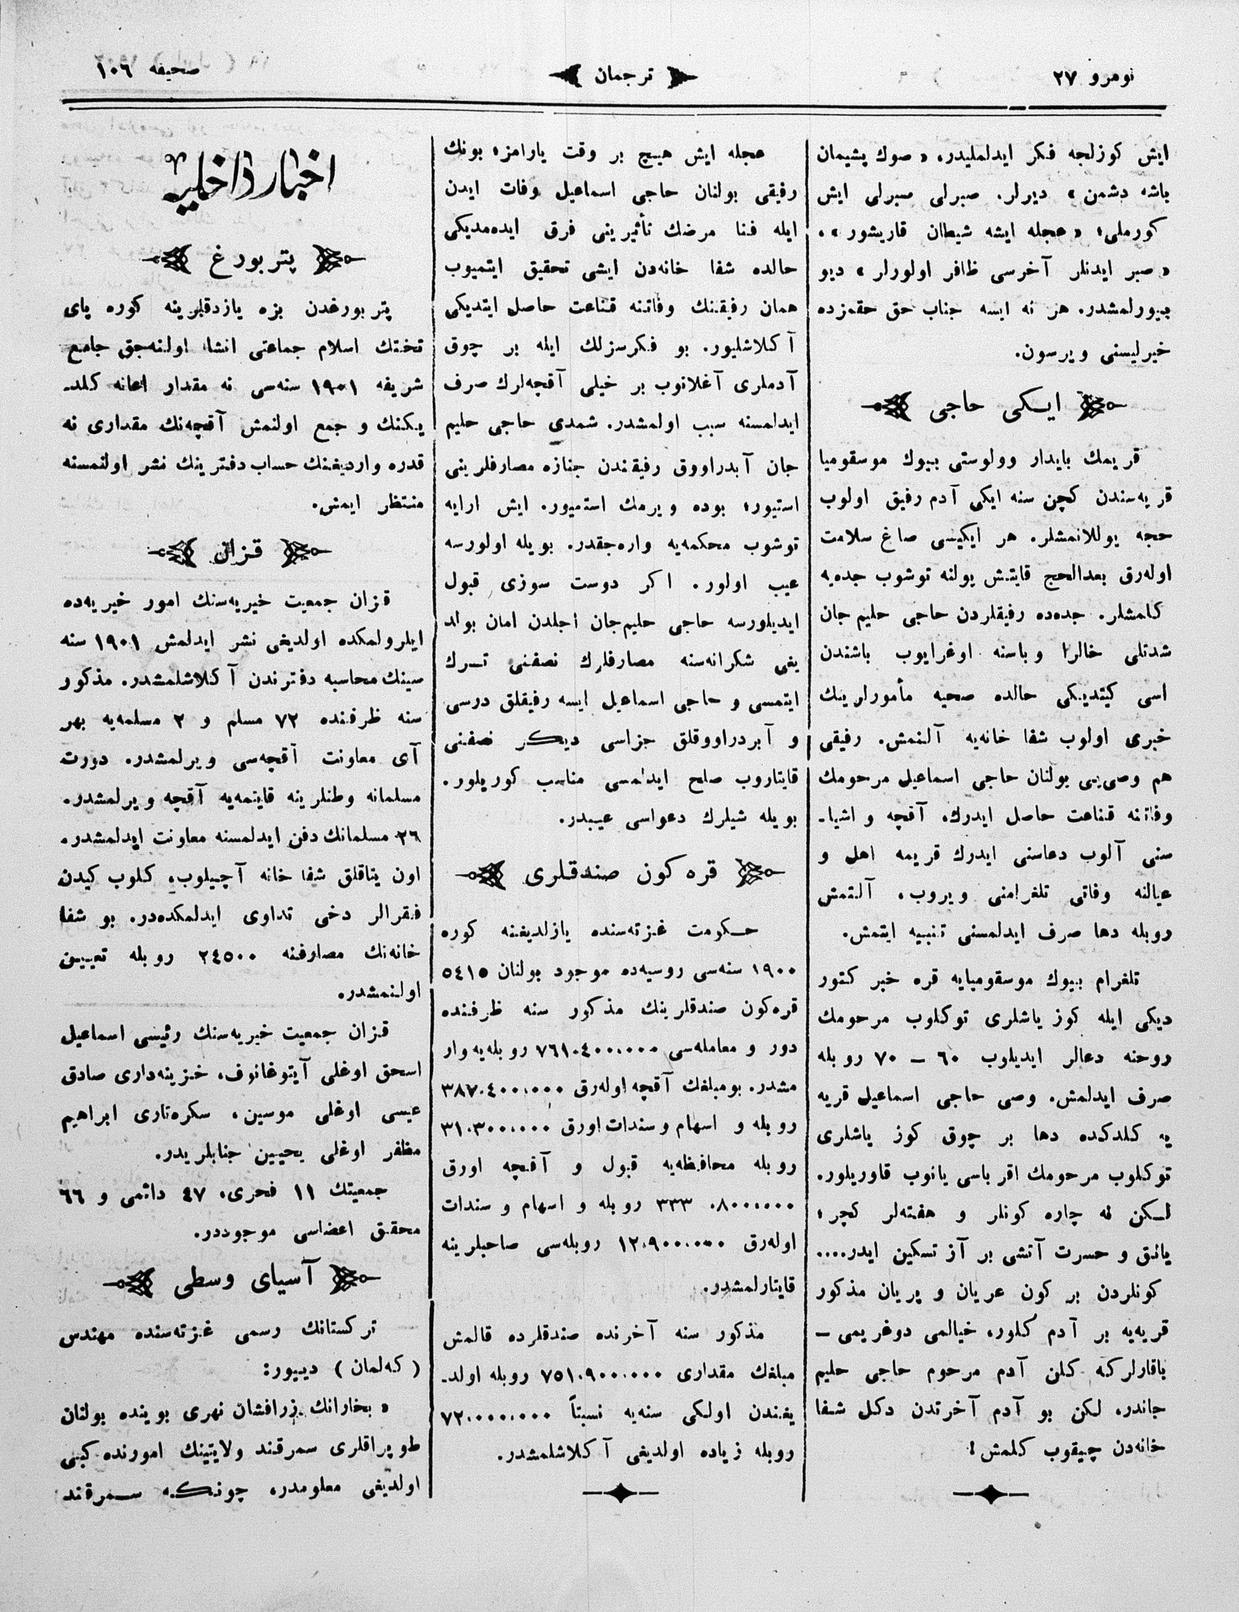 نومرو ٢٧
ترجمان
صحيفه ١٠٦
ايش كوزلجه فكر ايدلمليدر، «صوك پشيمان
باشه دشمن» ديرلر. صبرلى صبرلى ايش
كورملى؛ «عجله ايشه شيطان قاريشور».
«صبر ايدنلر آخرسى ظافر اولورلر» ديو
بيورلمشدر. هر نه ايسه جناب حق حقمزده
خيرليسنى ويرسون.
ايكى حاجى
قريمك بايدار وولوستى بيوك موسقوميا
قريه‌سندن كچن سنه ايكى آدم رفيق اولوب
حجه يوللانمشلر. هر ايكيسى صاغ سلامت
اوله‌رق بعدالحج قايتش يولنه توشوب جده‌يه
كلمشلر. جده‌ده رفيقلردن حاجى حليم جان
شدتلى خالرا وباسنه اوغرايوب باشندن
اسى كيتديكى حالده صحيه مأمورلرينك
خبرى اولوب شفا خانه‌يه آلنمش. رفيقى
هم وصى‌يى بولنان حاجى اسماعيل مرحومك
وفاتنه قناعت حاصل ايدرك، آقچه و اشيا-
سنى آلوب دعاسنى ايدرك قريمه اهل و
عيالنه وفاتى تلغرامنى ويروب، آلتمش
روبله دها صرف ايدلمسنى تنبيه ايتمش.
تلغرام بيوك موسقوميايه قره خبر كتور
ديكى ايله كوز ياشلرى توكلوب مرحومك
روحنه دعالر ايديلوب ٦٠ – ٧٠ روبله
صرف ايدلمش. وصى حاجى اسماعيل قريه
يه كلدكده دها بر چوق كوز ياشلرى
توكلوب مرحومك اقرباسى يانوب قاوريلور.
لسكن نه چاره كونلر و هفته‌لر كچر؛
يانق و حسرت آتشى بر آز تسكين ايدر....
كونلردن بر كون عريان و پريان مذكور
قريه‌يه بر آدم كلور، خيالمى دوغريمى –
باقارلركه كلن آدم مرحوم حاجى حليم
جاندر، لكن بو آدم آخرتدن دكل شفا
خانه‌دن چيقوب كلمش!
عجله ايش هيچ بر وقت يارامز؛ بونك
رفيقى بولنان حاجى اسماعيل وفات ايدن
ايله فنا مرضك تأثيرينى فرق ايده‌مديكى
حالده شفا خانه‌دن ايشى تحقيق ايتميوب
همان رفيقنك وفاتنه قناعت حاصل ايتديكى
آكلاشليور. بو فكرسزلك ايله بر چوق
آدملرى آغلاتوب بر خيلى آقچه‌لرك صرف
ايدلمسنه سبب اولمشدر. شمدى حاجى حليم
جان آبدراووق رفيقندن جنازه مصارفلرينى
استيور؛ بوده ويرمك استميور. ايش ارايه
توشوب محكمه‌يه واره‌جقدر. بويله اولورسه
عيب اولور. اكر دوست سوزى قبول
ايديلورسه حاجى حليم‌جان اجلدن امان بولد
يغى شكرانه‌سنه مصارفلرك نصفنى تسرك
ايتمسى و حاجى اسماعيل ايسه رفيقلق درسى
و آبدراووقلق جزاسى ديكر نصفنى
قايتاروب صلح ايدلمسى مناسب كوريلور.
بويله شيلرك دعواسى عيبدر.
قره كون صندقلرى
حكومت غزته‌سنده يازلديغنه كوره
١٩٠٠ سنه‌سى روسيه‌ده موجود بولنان ٥٤١٥
قره‌كون صندقلرينك مذكور سنه ظرفنده
دور و معامله‌سى ٧٦١٠٤٠٠،٠٠٠ روبله‌يه وار
مشدر. بومبلغك آقچه اوله‌رق ٣٨٧٠٤٠٠،٠٠٠
روبله و اسهام و سندات اورق ٣١٠٣٠٠،٠٠٠
روبله محافظه‌يه قبول و آقچه اورق
٣٣٣ ٠٨٠٠،٠٠٠ روبله و اسهام و سندات
اوله‌رق ١٢٠٩٠٠،٠٠٠ روبله‌سى صاحبلرينه
قايتارلمشدر.
مذكور سنه آخرنده صندقلرده قالمش
مبلغك مقدارى ٧٥١٠٩٠٠،٠٠٠ روبله اولد-
يغندن اولكى سنه‌يه نسبتاً ٧٢،٠٠٠،٠٠٠
روبله زياده اولديغى آكلاشلمشدر.
اخبار داخليه
پتربورغ
پتربورغدن بزه يازدقلرينه كوره پاى
تختك اسلام جماعتى انشا اولنه‌جق جامع
شريفه ١٩٠١ سنه‌سى نه مقدار اعانه كلد-
يكنك و جمع اولنمش آقچه‌نك مقدارى نه
قدره وارديغنك حساب دفترينك نشر اولنمسنه
منتظر ايمش.
قزان
قزان جمعيت خيريه‌سنك امور خيريه‌ده
ايلرولمكده اولديغى نشر ايدلمش ١٩٠١ سنه
سينك محاسبه دفترندن آكلاشلمشدر. مذكور
سنه ظرفنده ٧٢ مسلم و ٢ مسلمه‌يه بهر
آى معاونت آقچه‌سى ويرلمشدر. دورت
مسلمانه وطنلرينه قايتمه‌يه آقچه ويرلمشدر.
٢٦ مسلمانك دفن ايدلمسنه معاونت ايدلمشدر.
اون يتاقلق شفا خانه آچيلوب، كلوب كيدن
فقرالر دخى تداوى ايدلمكده‌در. بو شفا
خانه‌نك مصارفنه ٢٤٥٠٠ روبله تعيين
اولنمشدر.
قزان جمعيت خيريه‌سنك رئيسى اسماعيل
اسحق اوغلى آيتوغانوف، خزينه‌دارى صادق
عيسى اوغلى موسين، سكره‌تارى ابراهيم
مظفر اوغلى يحيين جنابلريدر.
جمعيتك ١١ فخرى، ٤٧ دائمى و ٦٦
محقق اعضاسى موجوددر.
آسياى وسطى
تركستانك رسمى غزته‌سنده مهندس
(كه‌لمان) دييور:
«بخارانك زرافشان نهرى بوينده بولنان
طوپراقلرى سمرقند ولايتينك امورنده كبى
اولديغى معلومدر، چونكه سمرقند